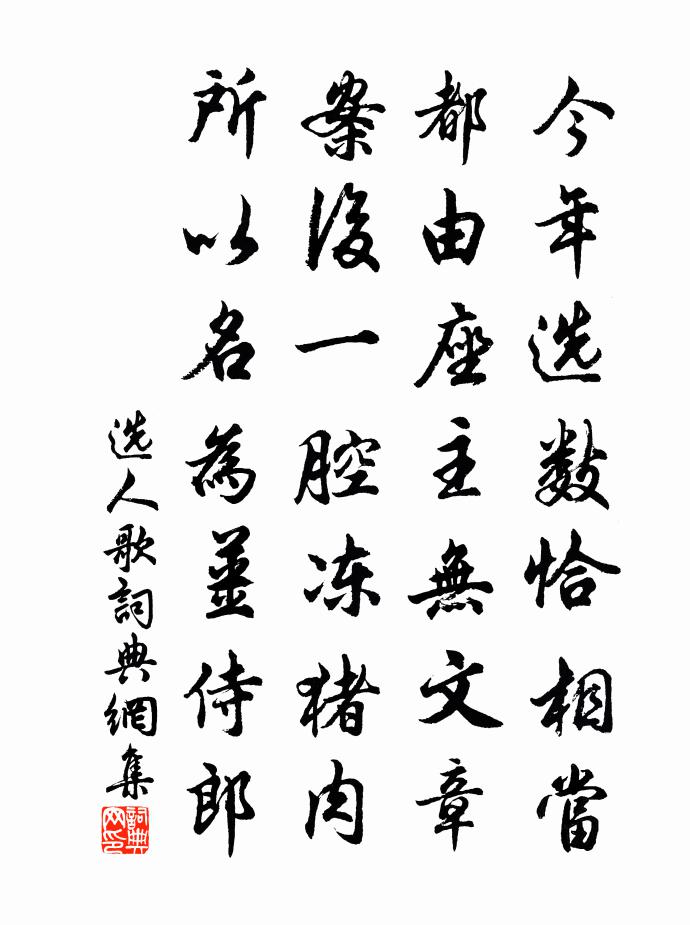 今年选数恰相當
都由座主無文章
案後一腔冻猪肉
所以名為薑侍郎
选人歌詞典網集
詞典網印